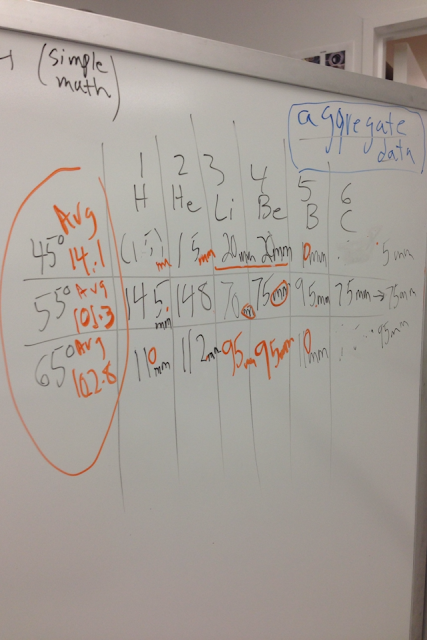 (simple
math)
aggregate
data
1 2 3 4 5 6
H He Li Be B C
45° Avg 14.1 (15) mm 15mm 20mm 20mm 10mm 5mm
55° Avg 101.3 145mm 148 70mm 75mm 95mm 75mm → 75mm
65° Avg 102.8 110mm 112mm 95mm 95mm 110mm 95mm